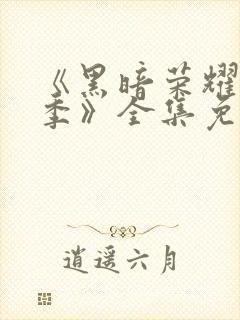 《黑暗荣耀
季》全集免
逍遥六月